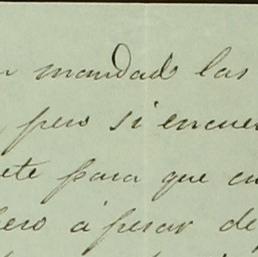 mandad las
pero si encue
ete para que cu
pero á pesar de